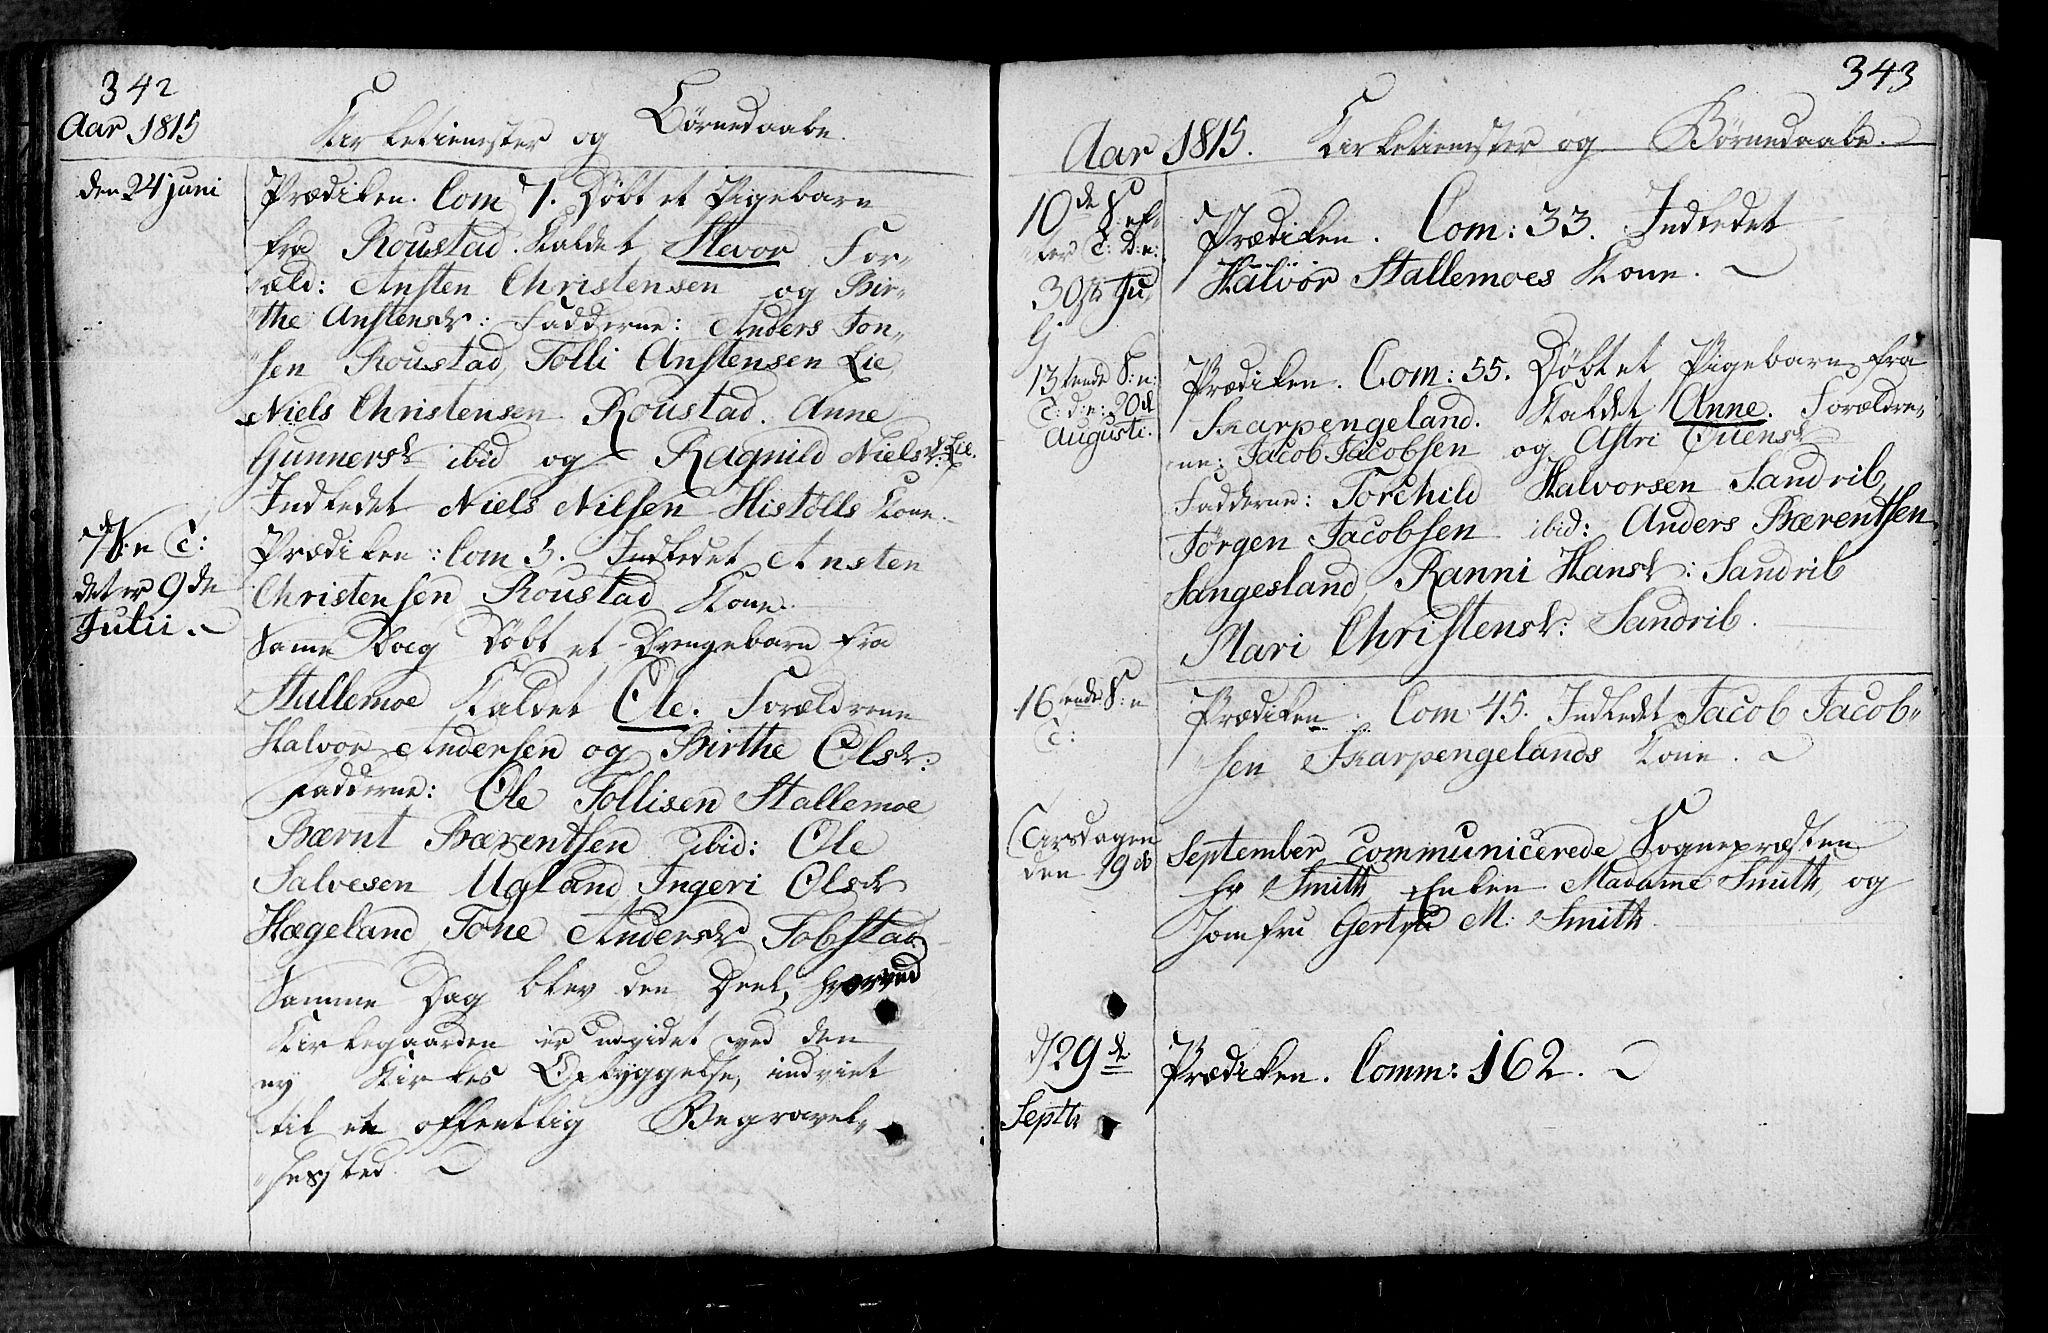 342
Aar 1815
Kirketienester og Börnedaabe.
den 24 juni
Prædiken. Com 7. Döbt et Pigebarn
fra Roustad. Kaldet Stevor For-
æld: Ansten Christensen og Bir-
the Anstensdr: Fadderne: Anders Ton-
sen Roustad, Tolli Anstensen Lie
Niels Christensen Roustad. Anne
Gunnersdr ibid og Ragnild Nielsdr: Lie.
Indledet Niels Nilsen Histölls Kone.
7de S: e: T:
det er 9de
Julii.
Prædiken: Com 5. Indledet Ansten
Christensen Roustad Kone.
Samme Dag Döbt et Drengebarn fra
Stallemoe Kaldet Ole. Forældrene
Halvor Andersen og Birthe Olsdr:
Fadderne: Ole Tollisen Stallemoe
Bærnt Bærentsen ibid: Ole
Salvesen Ugland Ingeri Olsdr
Hægeland, Tone Andersdr Tobstad
Samme Dag blev den Deel, hvorved
Kirkegaarden er udvidet ved den
ny Kirkes Opbyggelse, indviet
til et offentlig Begravel-
sessted.
343
Aar 1815. Kirketienester og Börnedaabe.
10de S: ef-
ter T: D: e:
30te Ju
lj
Prædiken. Com: 33. Indledet
Halvor Stallemoes Kone.
13tende S: e:
T: d: e: 20de
Augusti.
Prædiken. Com: 55. Döbt et Pigebarn fra
Skarpengeland. Kaldet Anne. Forældre-
ne: Jacob Jacobsen og Astri Ouensdr
Fadderne: Torchild Halvorsen Sandrib,
Jörgen Jacobsen ibid: Anders Bærentsen
Sangesland, Ranni Hansdr: Sandrib
Mari Christensdr: Sandrib.
16tende S: e
T:
Prædiken. Com 45. Indledet Jacob Jacob-
sen Skarpengelands Kone.
Tirsdagen
den 19de
September communicerede Sognepræsten
Hr Smith, Enken Madame Smith, og
Jomfru Gertrud M: Smith.
d 29de
Septbr
Prædiken. Comm: 162.